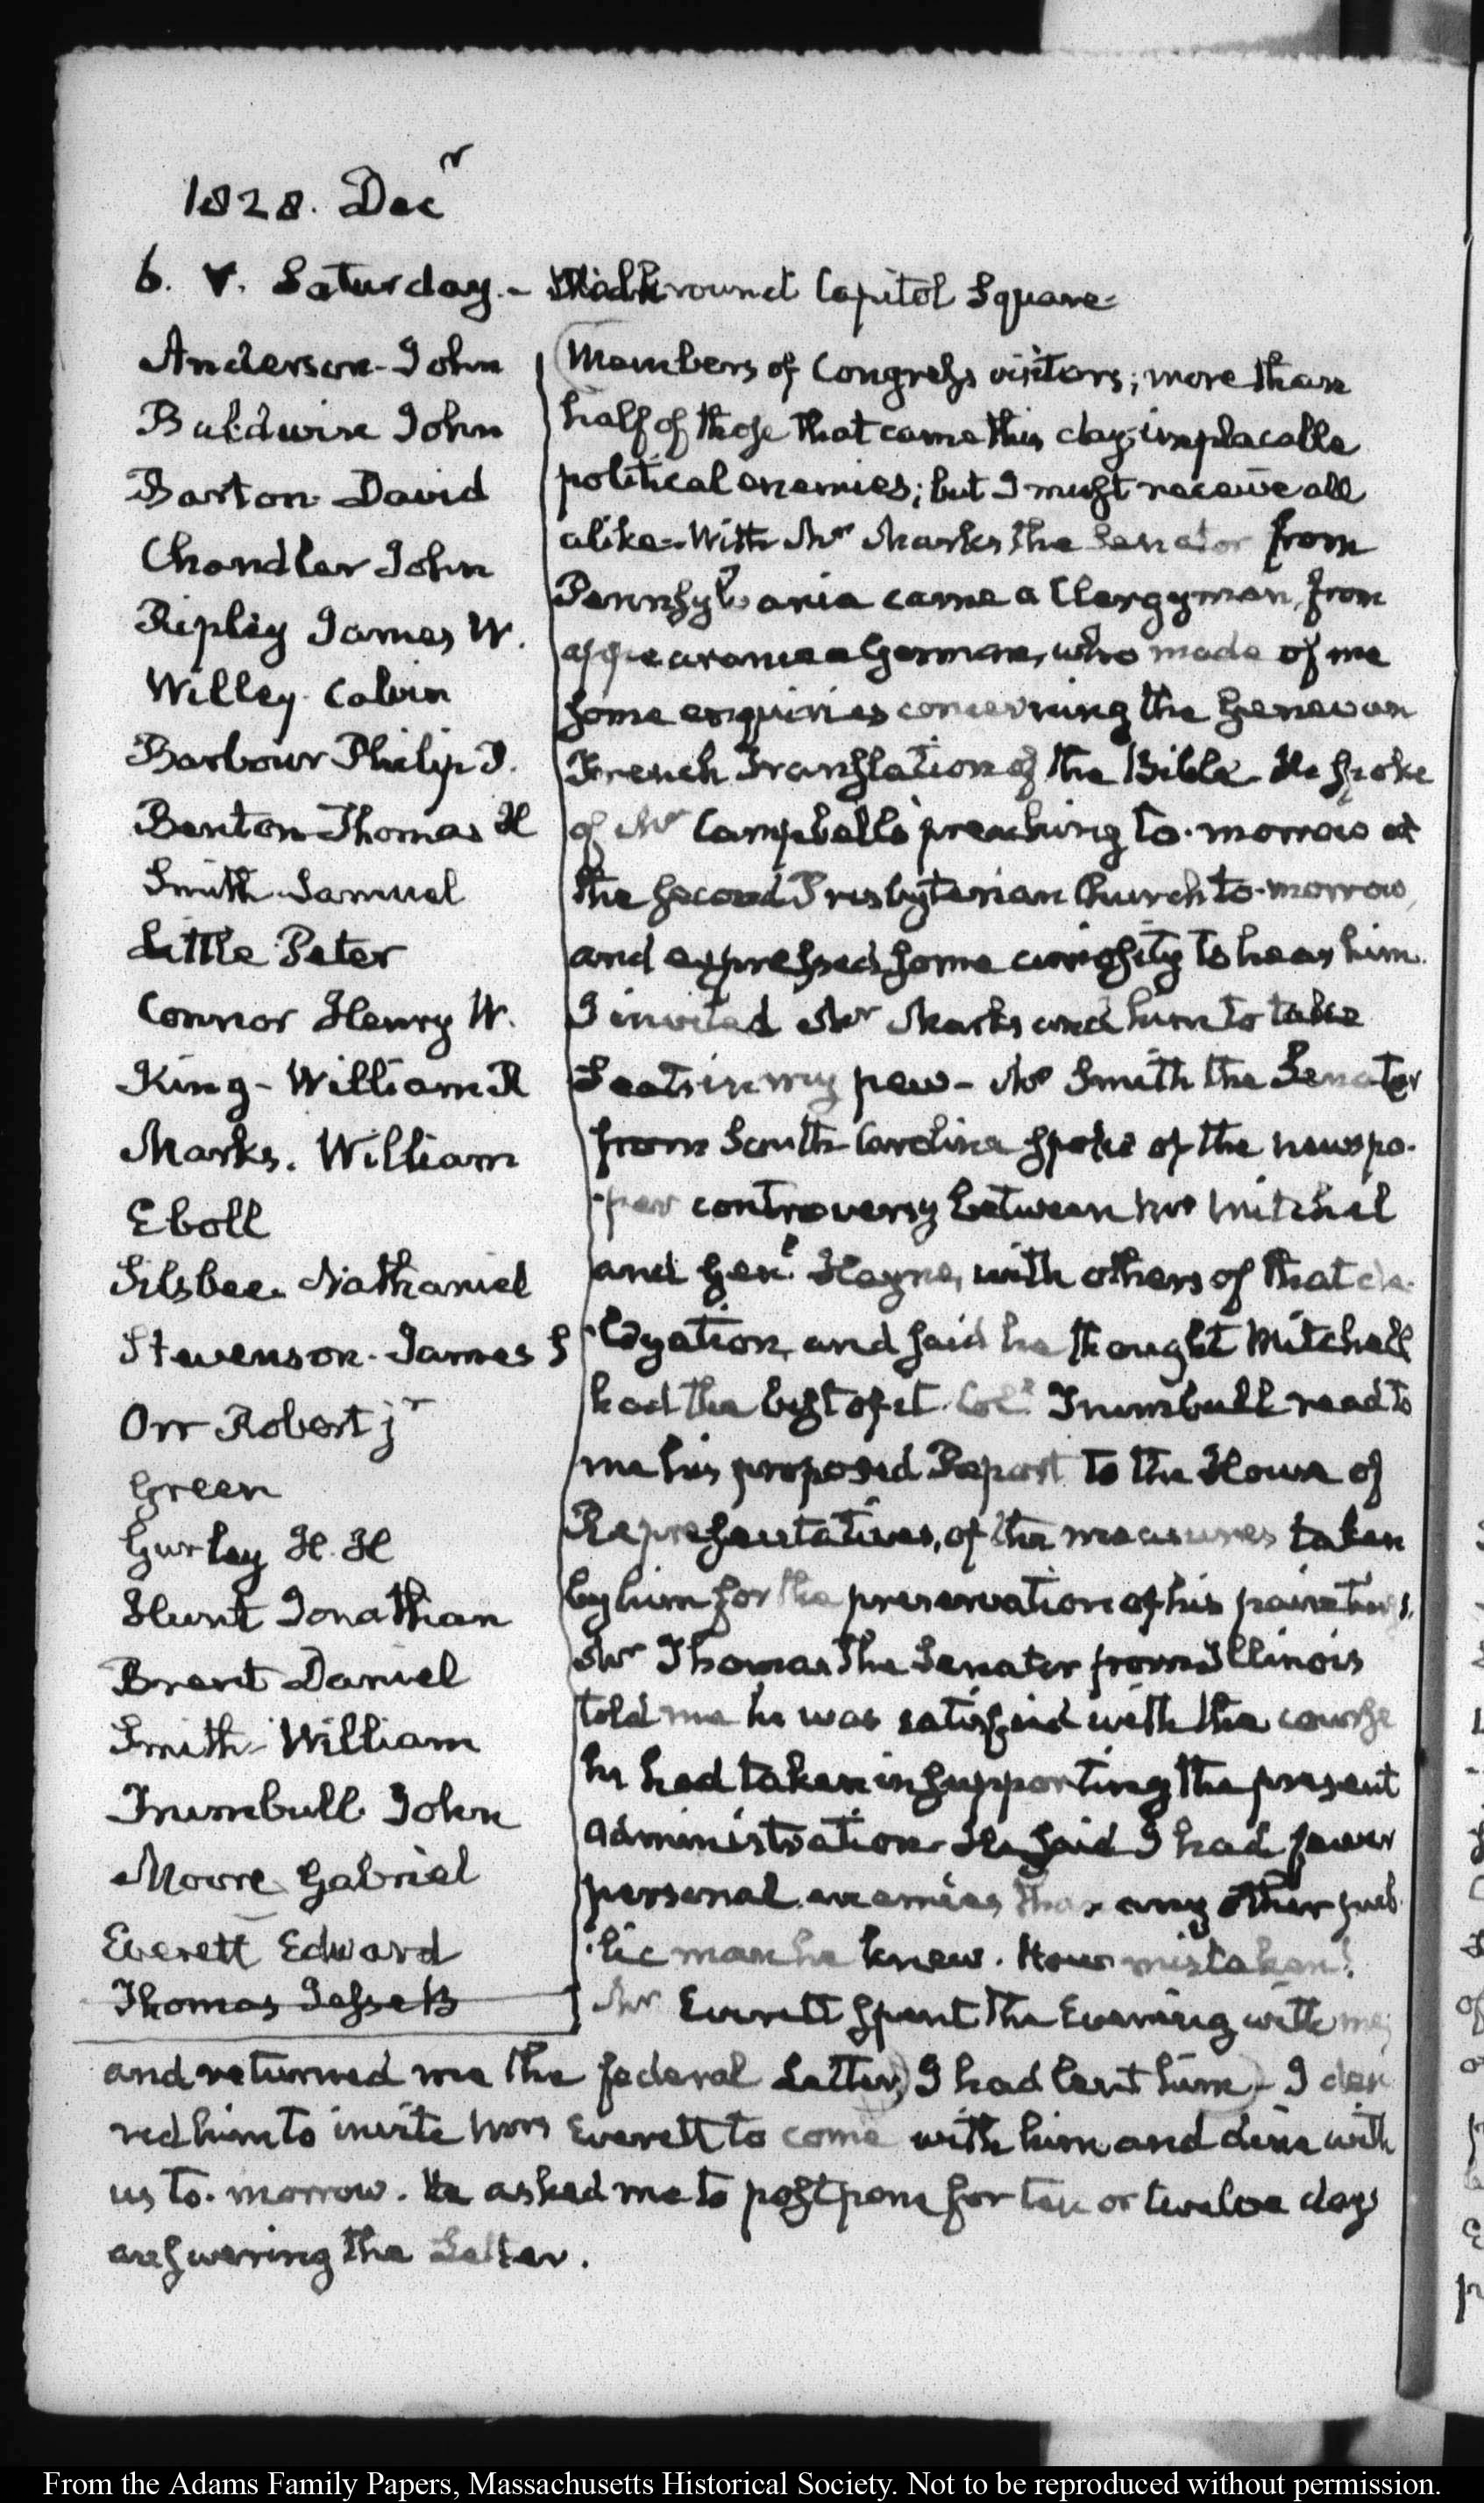 1828. Decr
6. V. Saturday.- Walk round Capitol Square-
Anderson- John
Baldwin John
Barton David
Chandler John
Ripley James W.
Willey Calvin
Barbour Philip P.
Benton Thomas H
Smith Samuel
Little Peter
Connor Henry W.
King- William R
Marks. William
Eboll
Silsbee. Nathaniel
Stevenson. James S
Orr Robert jr
Green
Gurley H. H
Hunt Jonathan
Brent Daniel
Smith- William
Trumbull John
Moore Gabriel
Everett Edward
Thomas Jesse B
Members of Congress visitors; more than
half of those that came this day, implacable
political enemies; but I must receive all
alike- With Mr Marks the Senator from
Pennsylvania came a Clergyman, from
appearance a German, who made of me
some enquiries concerning the Genevan
French Translation of the Bible- He spoke
of Mr Campbell's preaching to-morrow at
the second Presbyterian Church to-morrow,
and expressed some curiosity to hear him.
I invited Mr Marks and him to take
Seats in my pew- Mr Smith the Senator
from South Carolina spoke of the newspa-
-per controversy between Mr Mitchel
and Genl. Hayne, with others of that de-
-legation, and said he thought Mitchell
had the best of it. Coll. Trumbull read to
me his proposed Report to the House of
Representatives, of the measures taken
by him for the preservation of his paintings.
Mr Thomas the Senator from Illinois
told me he was satisfied with the course
he had taken in supporting the present
administration- He said I had fewer
personal enemies than any other pub-
-lic man he knew. How mistaken!
Mr Everett spent the Evening with me;
and returned me the federal Letter, I had lent him- I desi
red him to invite Mrs Everett to come with him and dine with
us to-morrow. He asked me to postpone for ten or twelve days
answering the Letter.
From the Adams Family Papers, Massachusetts Historical Society. Not to be reproduced without permission.